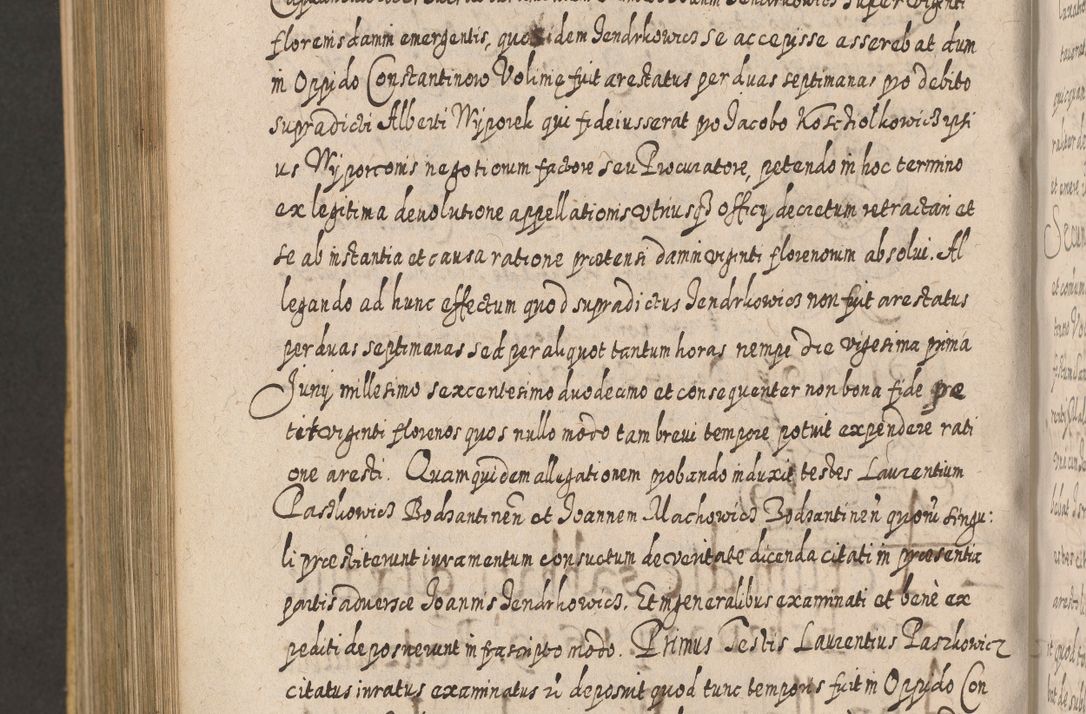 florenis damni emergentis, quos idem Jendrkowicz se accepisse asserebat dum
in Oppido Constantinow Volinię fuit arestatus per duas septimanas pro debito
supradicti Alberti Wyporek qui fideiusserat pro Jacobo Koschiołkowicz ipsi
us Wyporconis negotiorum factore seu Procuratore, petendo in hoc termino
ex legitima deuolutione appellationis vtriusq3 officij decretum retractari et
se ab instantia et causa ratione prætensi damni viginti florenorum absolui. Al
legando ad hunc effectum quod supradictus Jendrkowicz non fuit arestatus
per duas septimanas sed per aliquot tantum horas nempe die vigesima prima
Junij millesimo sexcentesimo duodecimo et consequenter non bona fide pe
tit viginti florenos quos nullo modo tam breui tempore potuit expendere rati
one aresti. Quam quidem allegationem probando induxit testes Laurentium
Paszkowicz Bodzantinen̄ et Joannem Machowicz Bodzantinen̄ quorū singu:
li præstiterunt iuramentum consuetum de veritate dicenda citati in præsentia
partis aduersæ Joannis Jendrkowicz. Et in generalibus examinati et benè ex
pediti deposuerunt infrascripto modo. Primus Testis Laurentius Paszkowicz
citatus iuratus examinatus deposuit quod tunc temporis fuit in Oppido Con